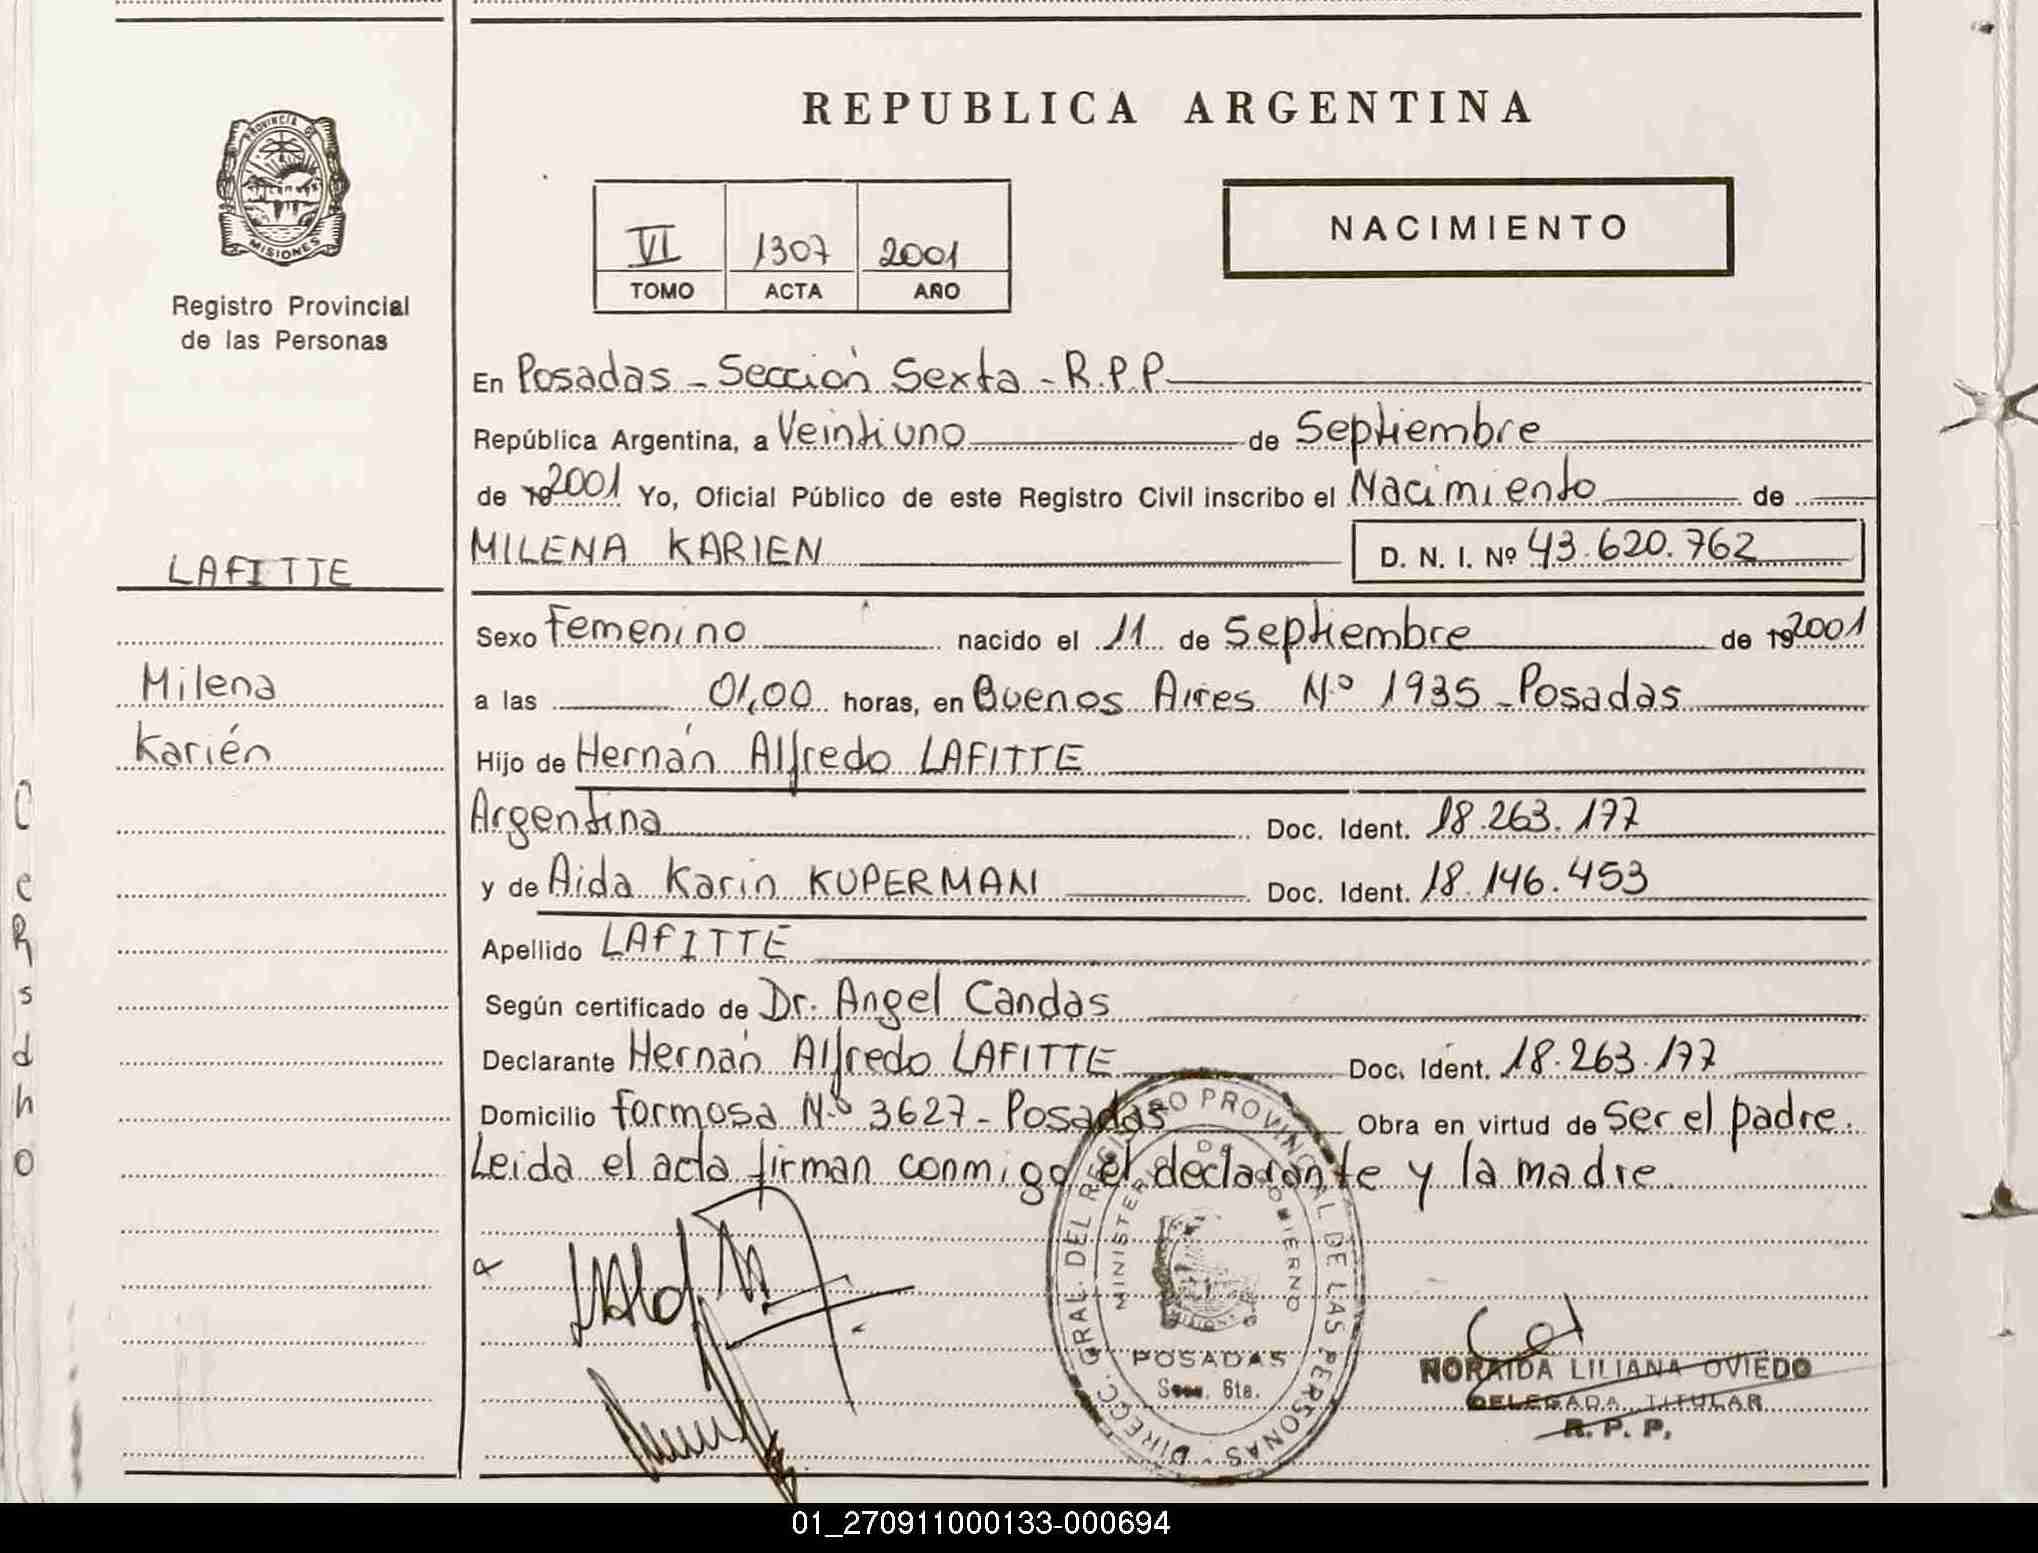 REPUBLICA ARGENTINA
PROVINCIA DE
MISIONES
Registro Provincial
de las Personas
VI 1307 2001
TOMO ACTA AÑO
NACIMIENTO
En Posadas - Sección Sexta - R.P.P.
República Argentina, a Veintiuno de Septiembre
de 19 2001 Yo, Oficial Público de este Registro Civil inscribo el Nacimiento de
MILENA KARIEN D. N. I. Nº 43.620.762
LAFITTE
Milena
Karién
Sexo Femenino nacido el 11 de Septiembre de 19 2001
a las 01,00 horas, en Buenos Aires N.º 1935 - Posadas
Hijo de Hernán Alfredo LAFITTE
Argentina Doc. Ident. 18.263.177
y de Aida Karin KUPERMAN Doc. Ident. 18.146.453
Apellido LAFITTE
Según certificado de Dr. Angel Candas
Declarante Hernán Alfredo LAFITTE Doc. Ident. 18.263.177
Domicilio Formosa N.º 3627 - Posadas Obra en virtud de Ser el padre.
Leida el acta firman conmigo el declarante y la madre
DIRECC. GRAL. DEL REGISTRO PROVINCIAL DE LAS PERSONAS
MINISTERIO DE GOBIERNO
POSADAS
Secc. 6ta.
NORAIDA LILIANA OVIEDO
DELEGADA TITULAR
R. P. P.
01_270911000133-000694